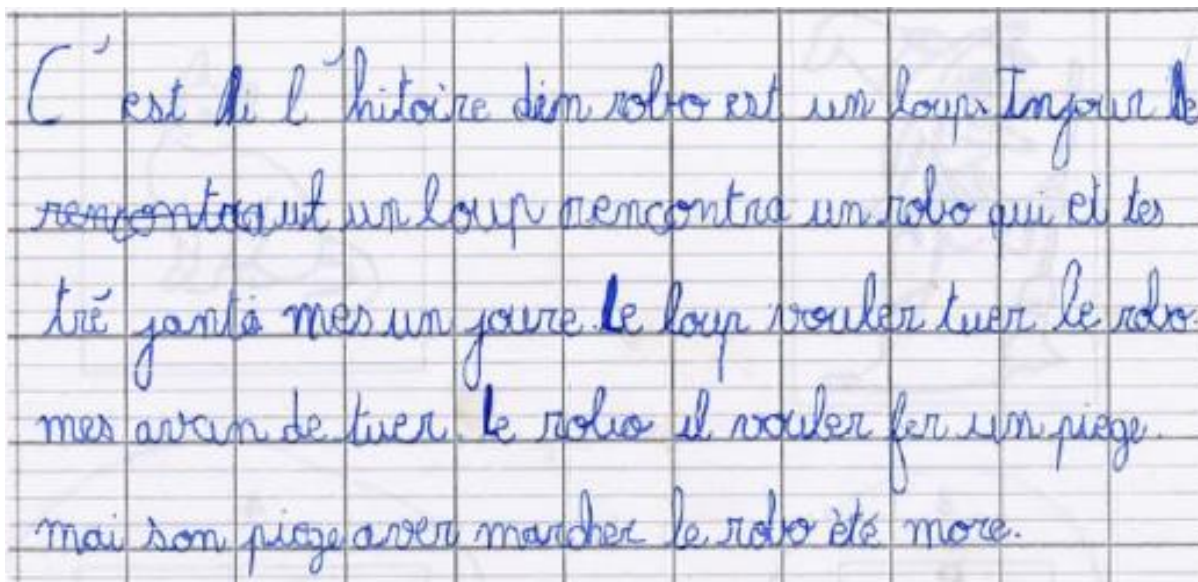 C'est di l'hitoire d'im robo est un loup. Injour le
rencontra ut un loup rencontra un robo qui et tes
tré janté mes un joure. Le loup vouler tuer le robo.
mes avan de tuer. Le robo il vouler fer un piège.
mai son piège aver marcher le robo été more.